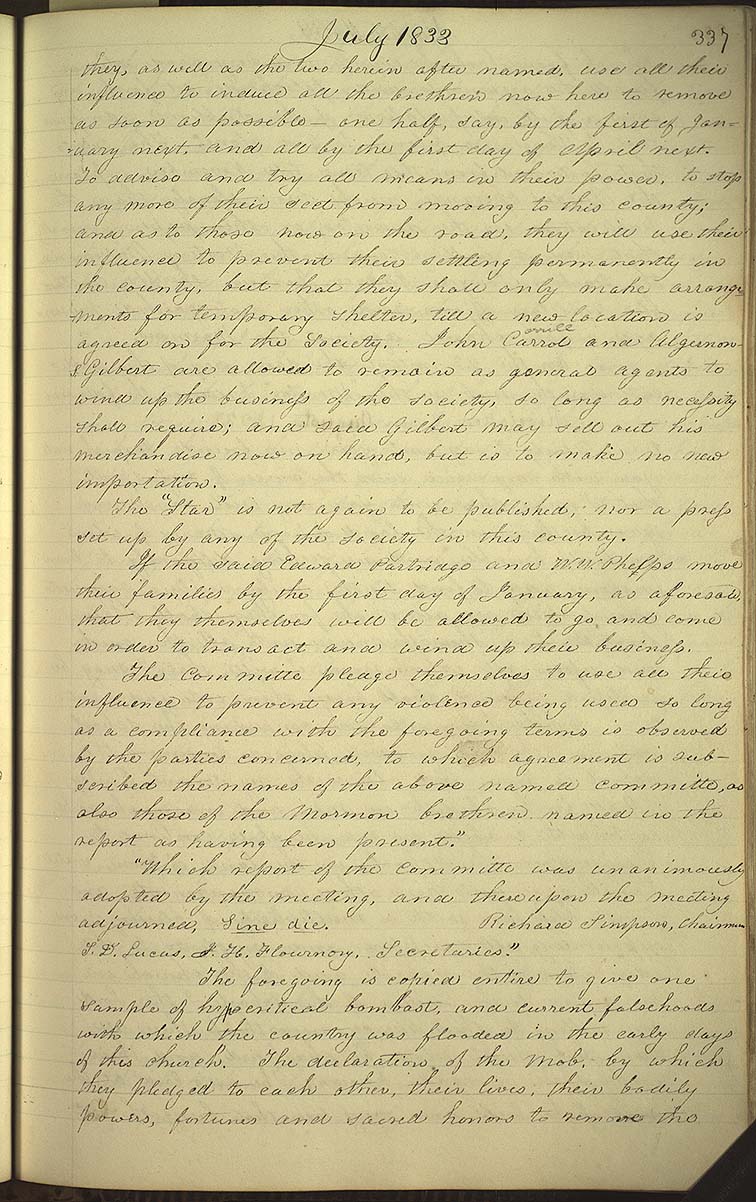 July 1833 337
they, as well as the two herein after named, use all their
influence to induce all the brethren now here to remove
as soon as possible — one half, say, by the first of Jan-
uary next, and all by the first day of April next.
To advise and try all means in their power, to stop
any more of their sect from moving to this county;
and as to those now on the road, they will use their
influence to prevent their settling permanently in
the county, but that they shall only make arrange
ments for temporary shelter, till a new location is
agreed on for the Society. John Carrol and Algernon
orrill
S. Gilbert are allowed to remain as general agents to
wind up the business of the society, so long as necessity
shall require; and said Gilbert may sell out his
merchandise now on hand, but is to make no new
importation.
The "Star" is not again to be published, nor a press
set up by any of the society in this county.
If the said Edward Partridge and W. W. Phelps move
their families by the first day of January, as aforesaid,
that they themselves will be allowed to go and come
in order to transact and wind up their business.
The committe pledge themselves to use all their
influence to prevent any violence being used so long
as a compliance with the foregoing terms is observed
by the parties concerned, to which agreement is sub-
scribed the names of the above named committe, as
also those of the Mormon brethren named in the
report as having been present."
"Which report of the committe was unanimously
adopted by the meeting, and thereupon the meeting
adjourned, Sine die. Richard Simpson, Chairman
S. D. Lucas, J. H. Flournoy, Secretaries."
The foregoing is copied entire to give one
sample of hypocritical bombast, and current falsehoods
with which the country was flooded in the early days
of this church. The declaration of the Mob, by which
they pledged to each other, their lives, their bodily
powers, fortunes and sacred honors to remove the